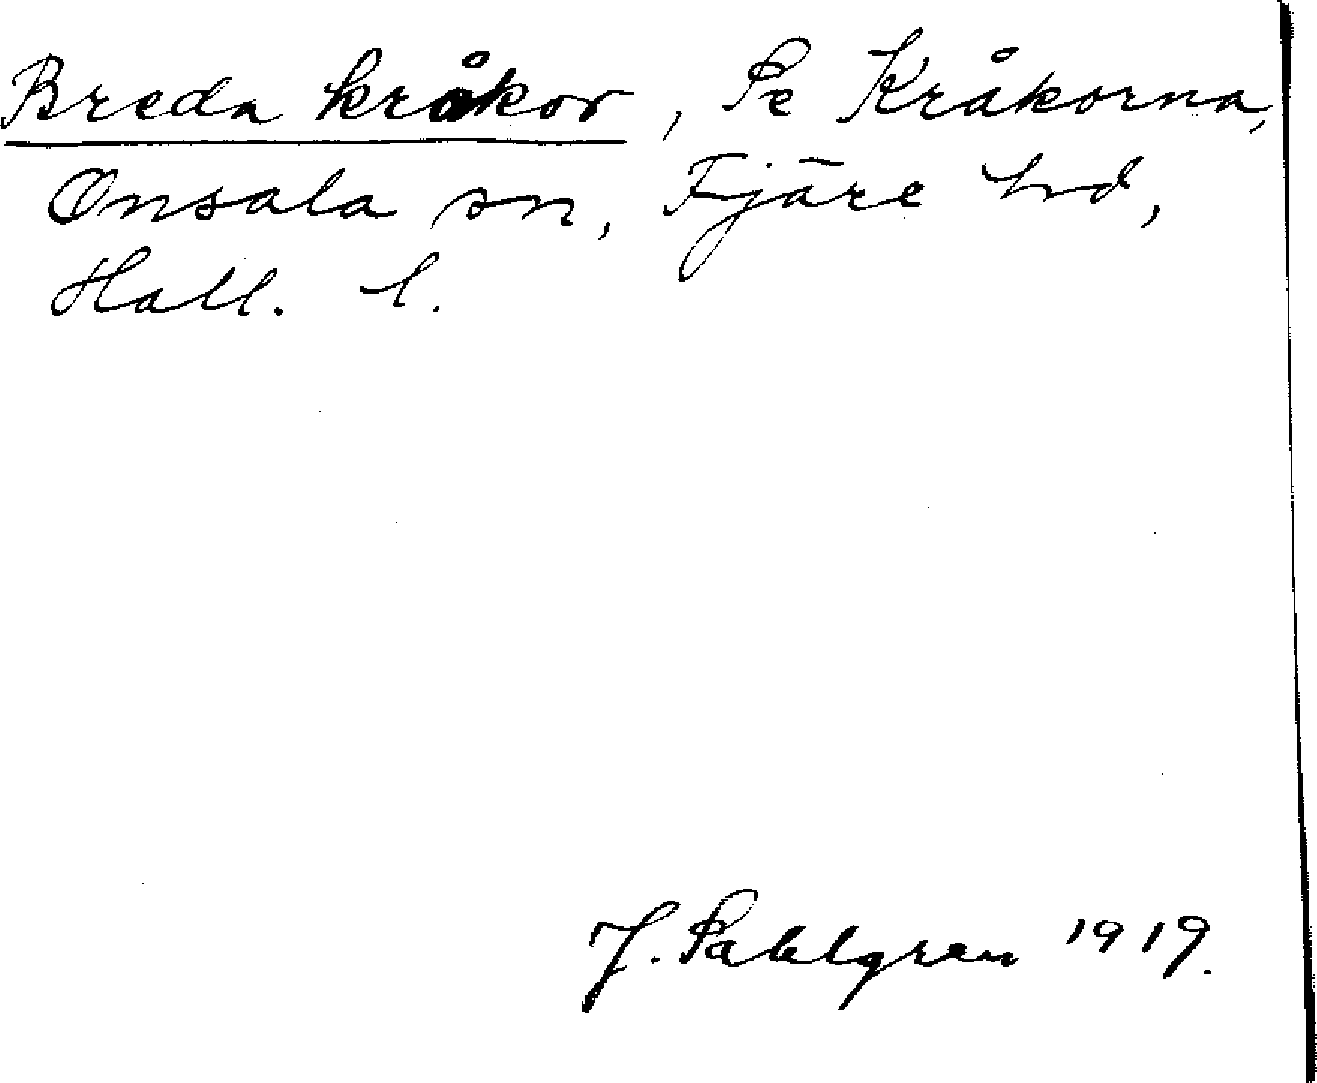 Breda kråkor, Se Kråkorna,
Onsala sn, Fjäre hd,
Hall. l.
J. Sahlgren 1919.